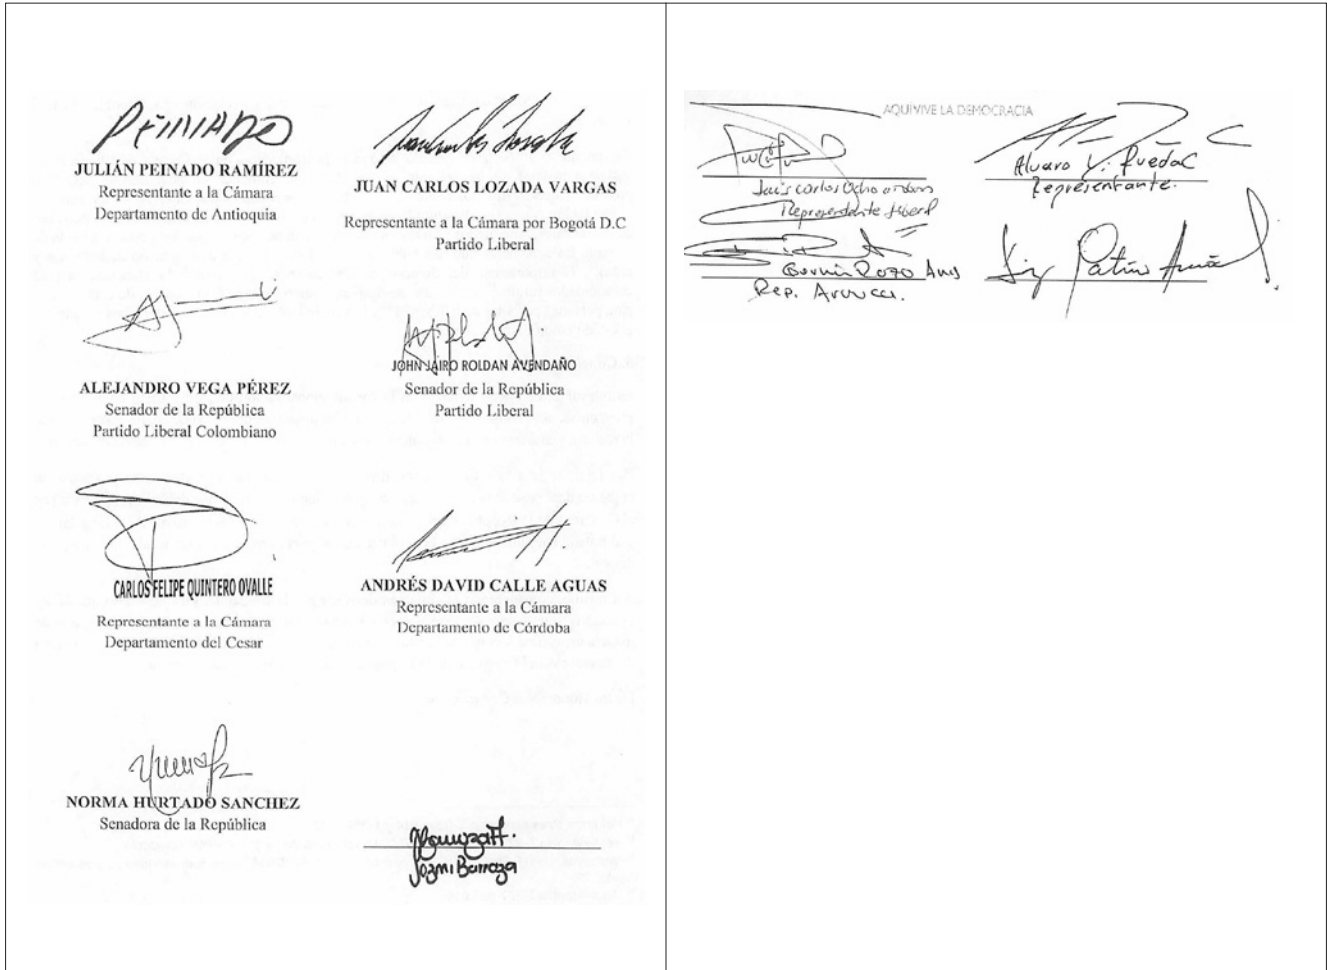 PEINADO
JULIÁN PEINADO RAMÍREZ
Representante a la Cámara
Departamento de Antioquia
JUAN CARLOS LOZADA VARGAS
Representante a la Cámara por Bogotá D.C
Partido Liberal
ALEJANDRO VEGA PÉREZ
Senador de la República
Partido Liberal Colombiano
JOHN JAIRO ROLDAN AVENDAÑO
Senador de la República
Partido Liberal
CARLOS FELIPE QUINTERO OVALLE
Representante a la Cámara
Departamento del Cesar
ANDRÉS DAVID CALLE AGUAS
Representante a la Cámara
Departamento de Córdoba
NORMA HURTADO SANCHEZ
Senadora de la República
Barraza
AQUÍVIVE LA DEMOCRACIA
Carlos Ochoa
Representante liberal
Rozo
Rep. Arauca.
Alvaro L. Rueda C
Representante.
Patiño